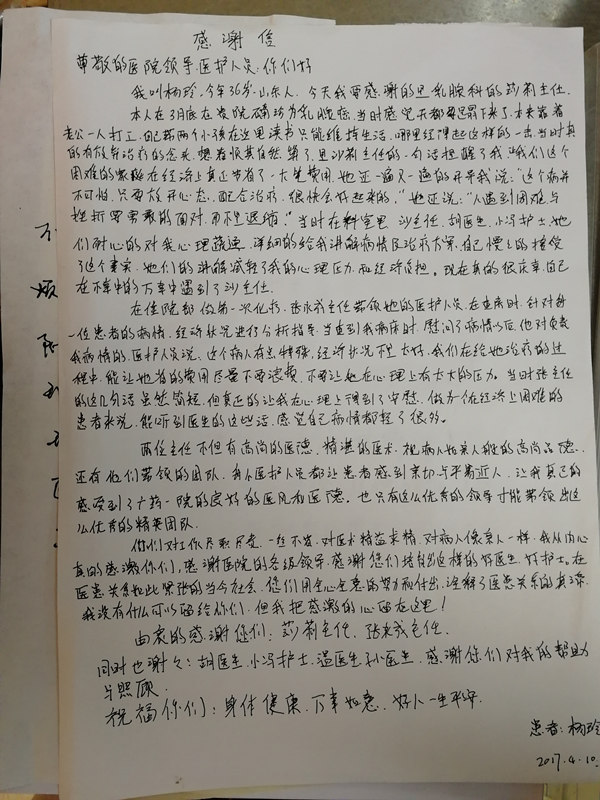 感谢信
尊敬的医院领导.医护人员.你们好
我叫杨玲,今年36岁.山东人,今天我要感谢的是乳腺科的莎莉主任.
本人在3月底在贵院确诊为乳腺癌,当时感觉天都要塌下来了.本来靠着
老公一人打工.自己带两个小孩在这里读书只能维持生活,哪里经得起这样的一击.当时真
的有放弃治疗的念头.想着顺其自然算了.是沙莉主任的一句话提醒了我."我们这个
困难的家庭在经济上真正节省了一大笔费用.她还一遍又一遍的开导我说:"这个病并
不可怕.只要放开心态.配合治疗.很快会好起来的."她还说:"人遇到困难与
挫折要勇敢的面对.而不是退缩."当时在科室里 沙主任.胡医生.小冯护士.她
们耐心的对我心理疏通.详细的给我讲解病情及治疗方案.自己慢慢的接受
了这个事实.她们的讲解减轻了我的心理压力和经济负担.现在真的很庆幸.自己
在不幸中的万幸中遇到了沙主任.
在住院部做第一次化疗.张主任带领她的医护人员在查房时.针对每
一位患者的病情.经济状况进行分析指导.当查到我病床时.慰问了病情以后.他对负责
我病情的医护人员说.这个病人有点特殊.经济状况不是太好.我们在给她治疗的过
程中.能让她省的费用尽量不要浪费.不要让她在心理上有太大的压力.当时张主任
的这几句话虽然简短.但真正的让我在心理上得到了安慰.做为在经济上困难的
患者来说.能听到医生的这些话.感觉自己病情都轻了很多.
两位主任不但有高尚的医德.精湛的医术.视病人如亲人般的高尚品德.
还有他们带领的团队.每个医护人员都让患者感到亲切与平易近人.让我真正的
感受到了广药一院的良好的医风和医德.也只有这么优秀的领导才能带领出这
么优秀的精英团队.
你们对工作尽职尽责.一丝不苟.对医术精益求精.对病人像亲人一样.我从内心
真的感激你们.感谢医院的各级领导.感谢您们培育出这样的好医生.好护士.在
医患关系如此紧张的当今社会.您们用全心全意的努力和付出.诠释了医患关系的真谛.
我没有什么可以留给你们.但我把感激的心留在这里!
由衷的感谢您们:莎莉主任.张主任.
同时也谢谢:胡医生.小冯护士.温医生.孙医生.感谢您们对我的帮助
与照顾.
祝福你们:身体健康.万事如意.好人一生平安.
患者:杨玲
2017.4.10.